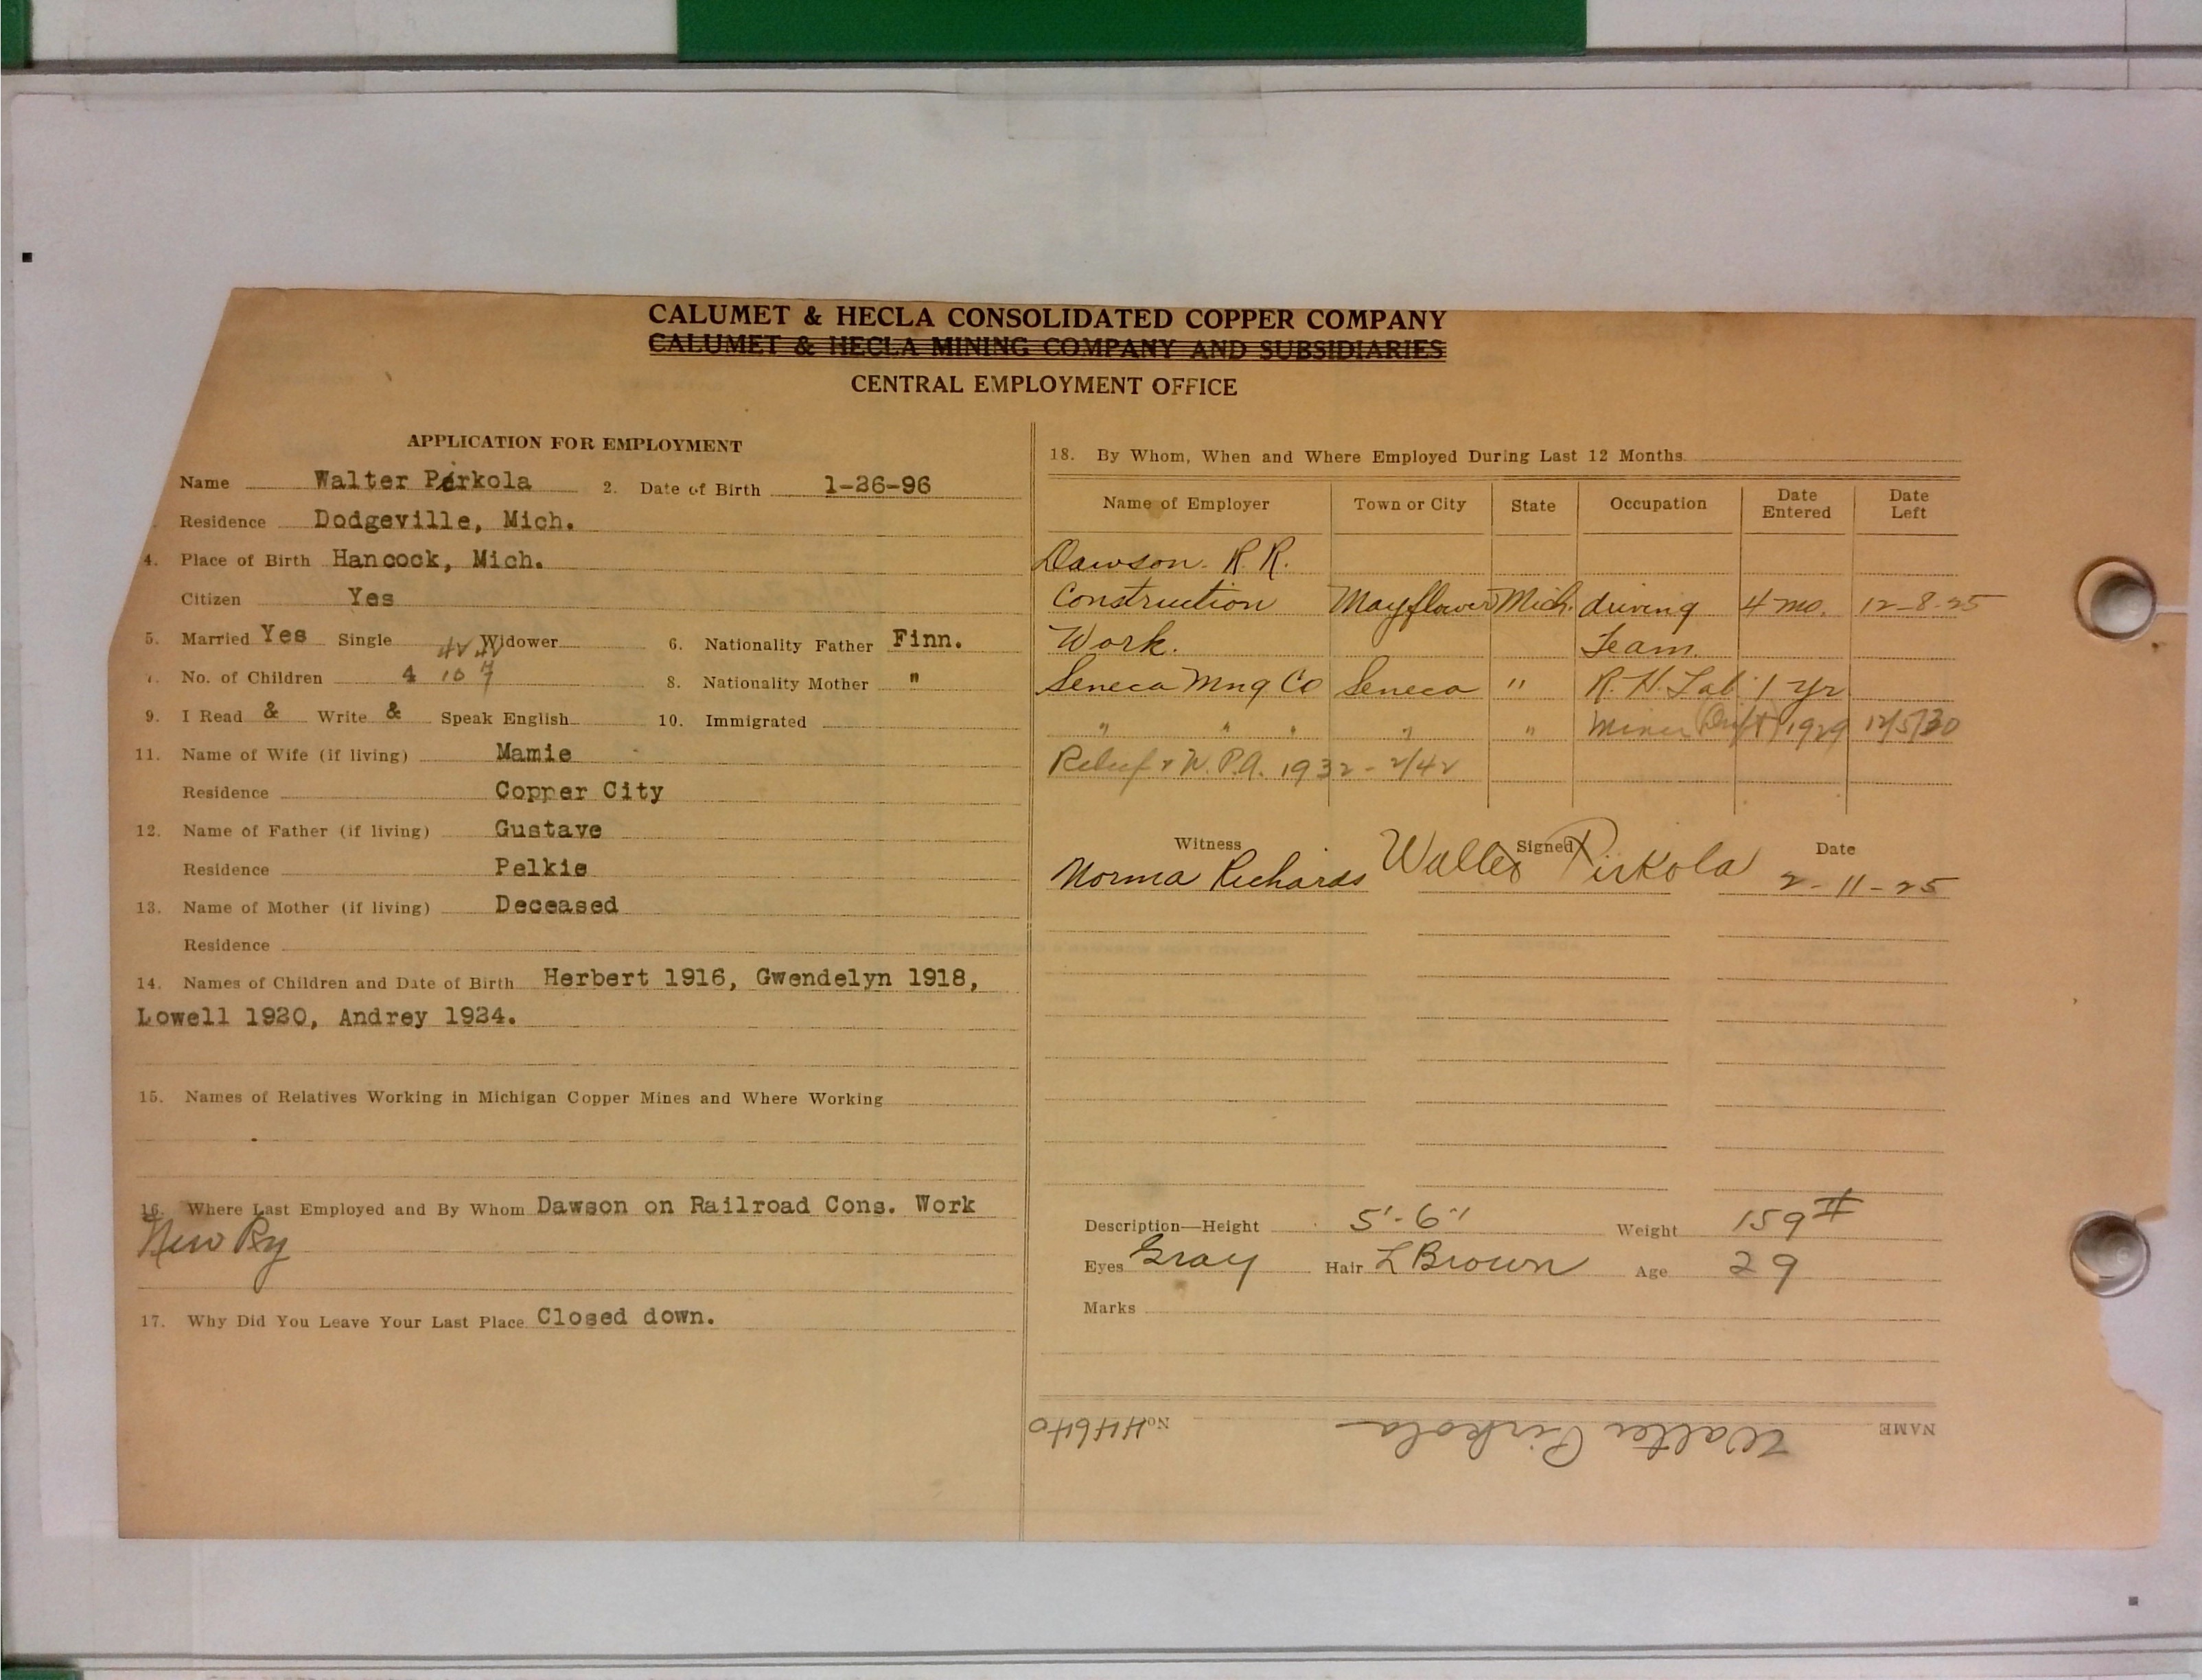 CALUMET & HECLA CONSOLIDATED COPPER COMPANY
CALUMET & HECLA MINING COMPANY AND SUBSIDIARIES
CENTRAL EMPLOYMENT OFFICE
APPLICATION FOR EMPLOYMENT
Name Walter Pirkola 2. Date of Birth 1-26-96
Residence Dodgeville, Mich.
4. Place of Birth Hancock, Mich.
Citizen Yes
5. Married Yes Single Widower 6. Nationality Father Finn.
No. of Children 4 10 7 8. Nationality Mother "
9. I Read & Write & Speak English 10. Immigrated
11. Name of Wife (if living) Mamie
Residence Copper City
12. Name of Father (if living) Gustave
Residence Pelkie
13. Name of Mother (if living) Deceased
Residence
14. Names of Children and Date of Birth Herbert 1916, Gwendelyn 1918,
Lowell 1920, Andrey 1924.
15. Names of Relatives Working in Michigan Copper Mines and Where Working
16. Where Last Employed and By Whom Dawson on Railroad Cons. Work
New Ry
17. Why Did You Leave Your Last Place Closed down.
18. By Whom, When and Where Employed During Last 12 Months
Name of Employer Town or City State Occupation Date Entered Date Left
Dawson. R. R.
Construction Mayflower Mich. driving 4 mo. 12-8-25
Work. Team.
Seneca Mng Co Seneca " R. H. Lab 1 Yr
" " " " " Miner (Drift) 1929 12/5/30
Relief & W.P.A. 1932 - 2/42
Witness Signed Date
Norma Richards Walter Pirkola 2-11-25
Description—Height 5'-6" Weight 159#
Eyes Gray Hair L Brown Age 29
Marks
NAME Walter Pirkola No. 44640